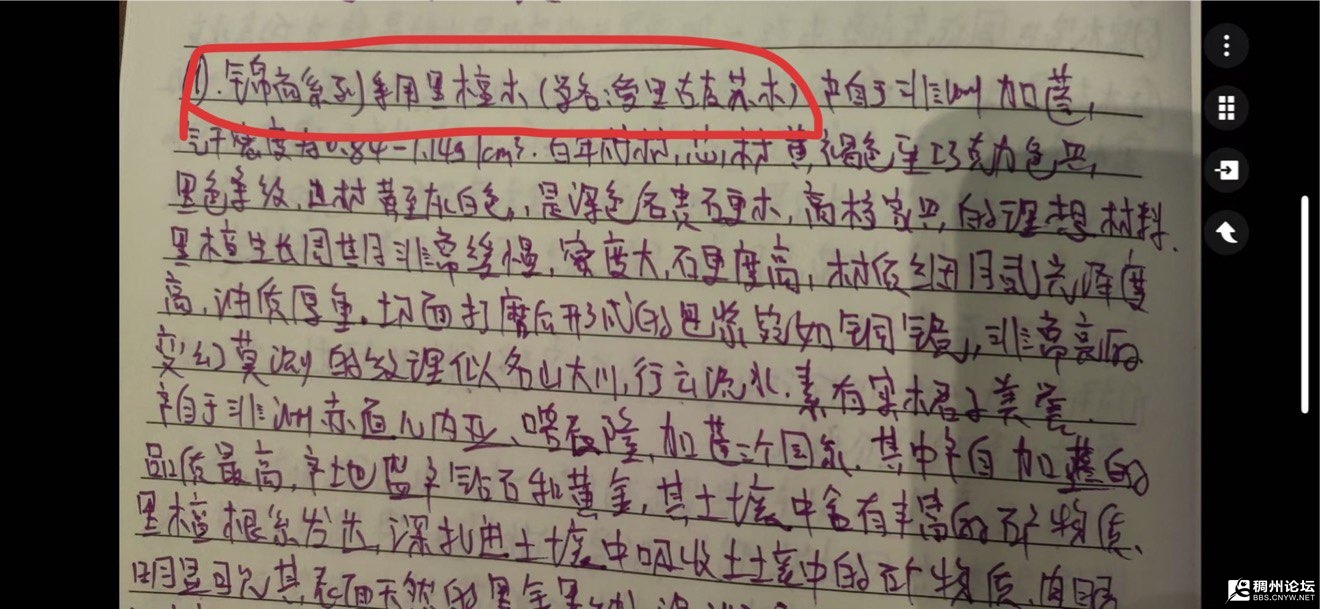 ①.锦高系列采用黑檀木(学名:鲁里古夷苏木)产自于非洲加蓬,
气干密度为0.84-1.14g/cm³.百年树材,心材黄褐色至巧克力色,
黑色条纹,边材黄至灰白色,是深色名贵硬木,高档家具,的理想材料.
黑檀生长周其月非常缓慢,密度大,硬度高,材质细腻光泽度
高,油质厚重.切面打磨后形成的黑紫纹如铜镜,非常亮丽
变幻莫测的纹理似名山大川,行云流水.素有实木君子美誉
产自于非洲赤道几内亚、喀麦隆,加蓬三个国家.其中产自加蓬的
品质最高,产地盛产钻石和黄金,其土壤中含有丰富的矿物质、
黑檀根系发达,深扎进土壤中吸收土壤中的矿物质,肉眼
明显可见其表面天然的黑金黑
稠州论坛
BBS.CNYW.NET